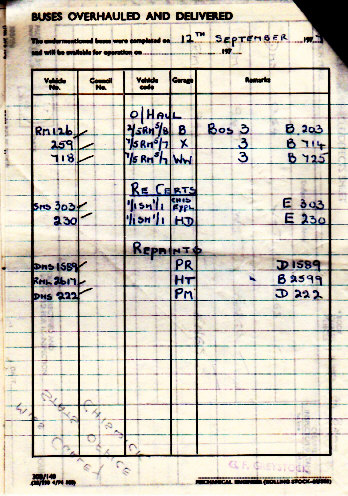 BUSES OVERHAULED AND DELIVERED
The undermentioned buses were completed on 12TH SEPTEMBER 197
and will be available for operation on 197
Vehicle No. Council No. Vehicle code Garage Remarks
O/HAUL
RM126 2/5RM5/8 B BOS 3 B 203
259 7/5RM5/7 X 3 B 714
718 7/5RM5/7 WW 3 B 725
RE CERTS
SMS 303 1/1SM1/1 E 303
230 1/1SM1/1 HD E 230
REPAINTS
DMS 1589 PR D1589
RML 2617 HT B 2599
DMS 222 PM D 222
CHISWICK
STATS OFFICE
MECHANICAL ENGINEER (ROLLING STOCK-BUSES)